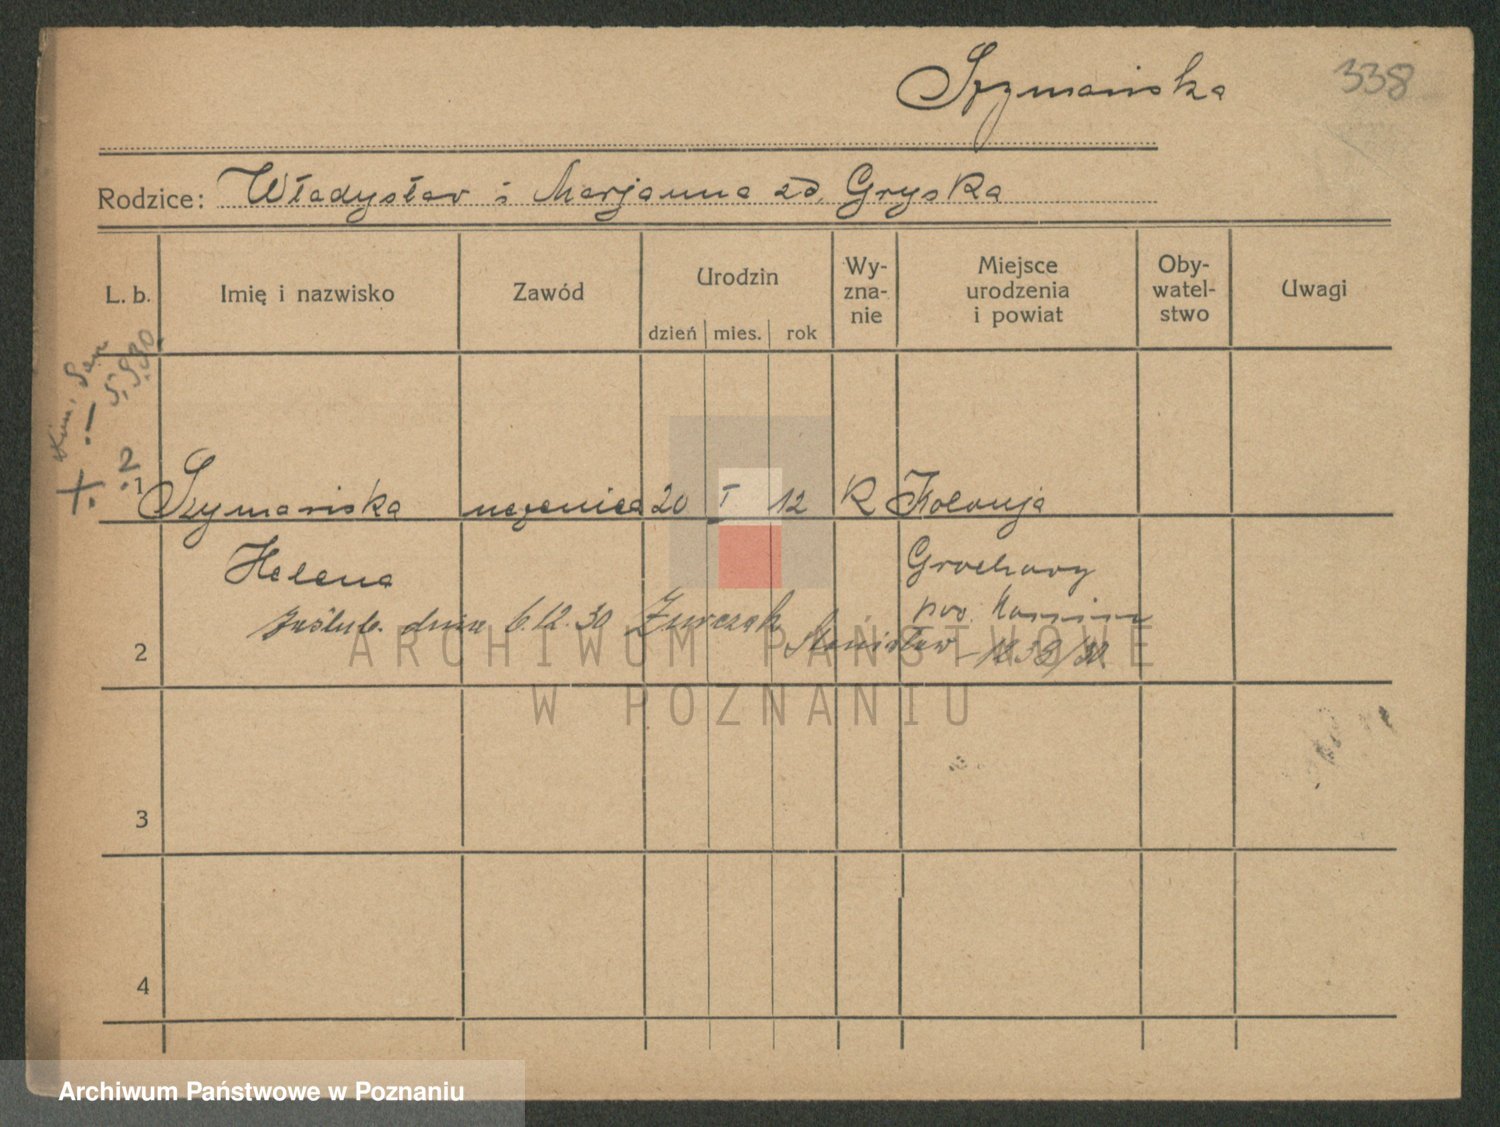 Szymańska
338
Rodzice: Władysław i Marjanna zd. Gryska
L. b.
Imię i nazwisko
Zawód
Urodzin
dzień
mies.
rok
Wy-
zna-
nie
Miejsce
urodzenia
i powiat
Oby-
watel-
stwo
Uwagi
1 Szymańska uczenica 20 I 12 R Kolonja
Helena
Grochowy
pow. Konin
zaślub. dnia 6.12.30 Żurczak
Stanisław
2
3
4
ARCHIWUM PAŃSTWOWE
W POZNANIU
Archiwum Państwowe w Poznaniu